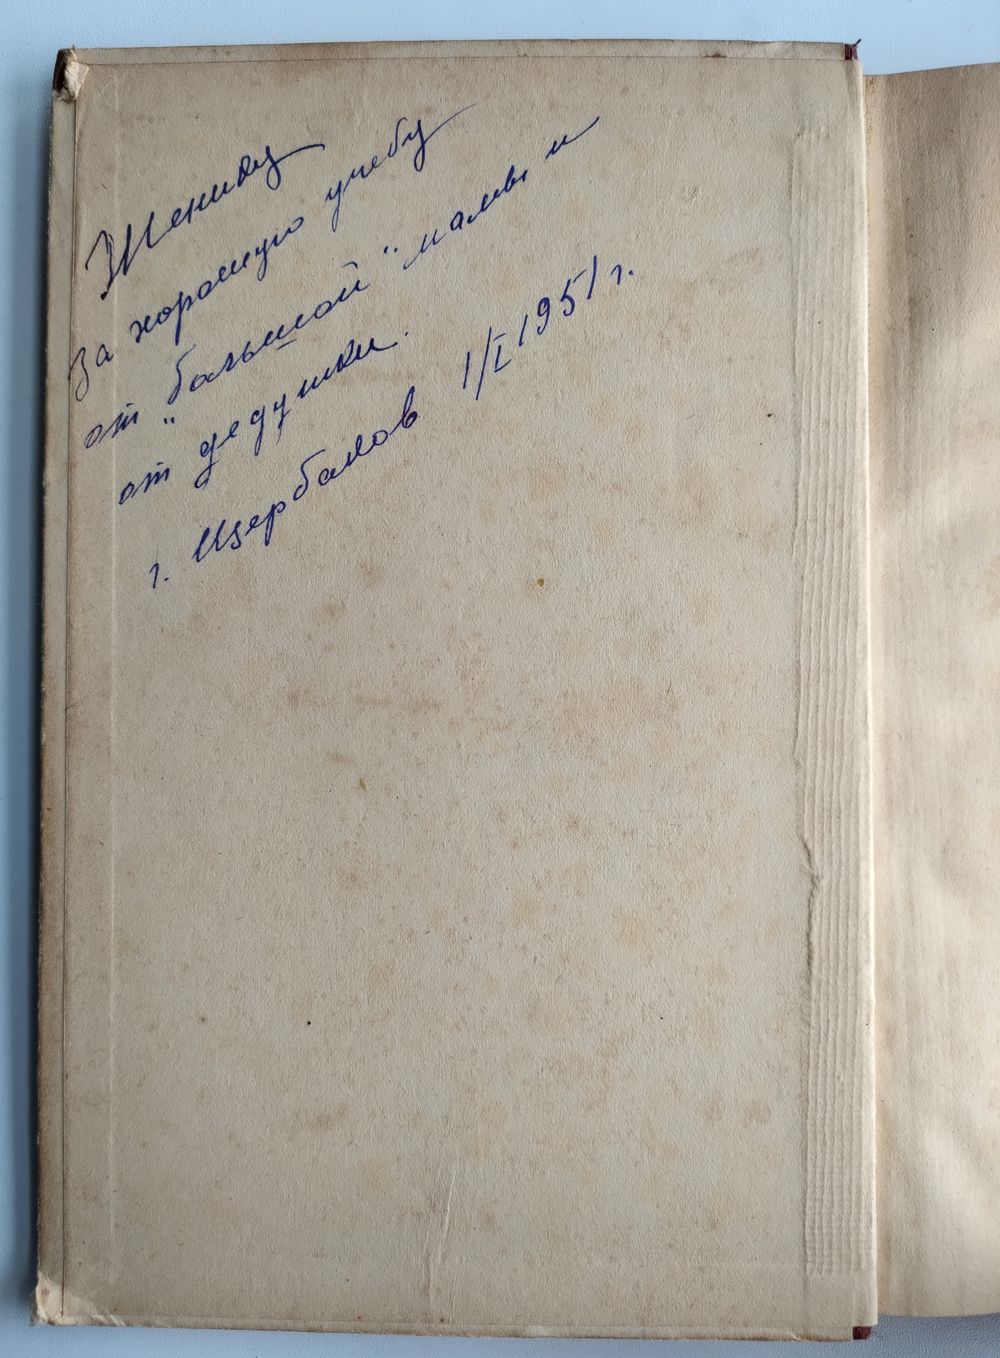 Женику
за хорошую учебу
от "большой" мамы и
от дедушки.
г. Щербаков 1/I 1951 г.